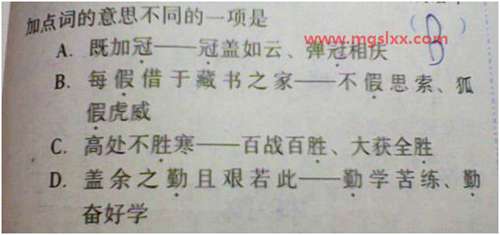 加点词的意思不同的一项是 ( B )
www.mgslxx.com
A. 既加冠——冠盖如云、弹冠相庆
B. 每假借于藏书之家——不假思索、狐
假虎威
C. 高处不胜寒——百战百胜、大获全胜
D. 盖余之勤且艰若此——勤学苦练、勤
奋好学